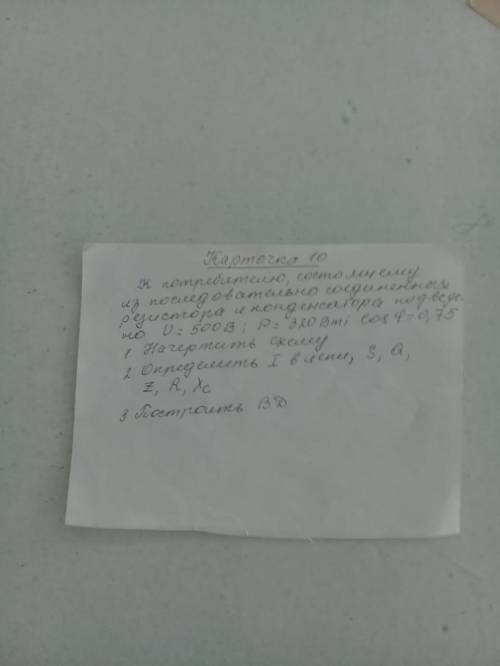 Карточка 10
К потребителю, состоящему
из последовательно соединенных
резистора и конденсатора подведе
но U = 500В; P = 320Вт; cos φ = 0,75
1 Начертить схему
2 Определить I в цепи, S, Q,
Z, R, Xc
3 Построить В.Д.